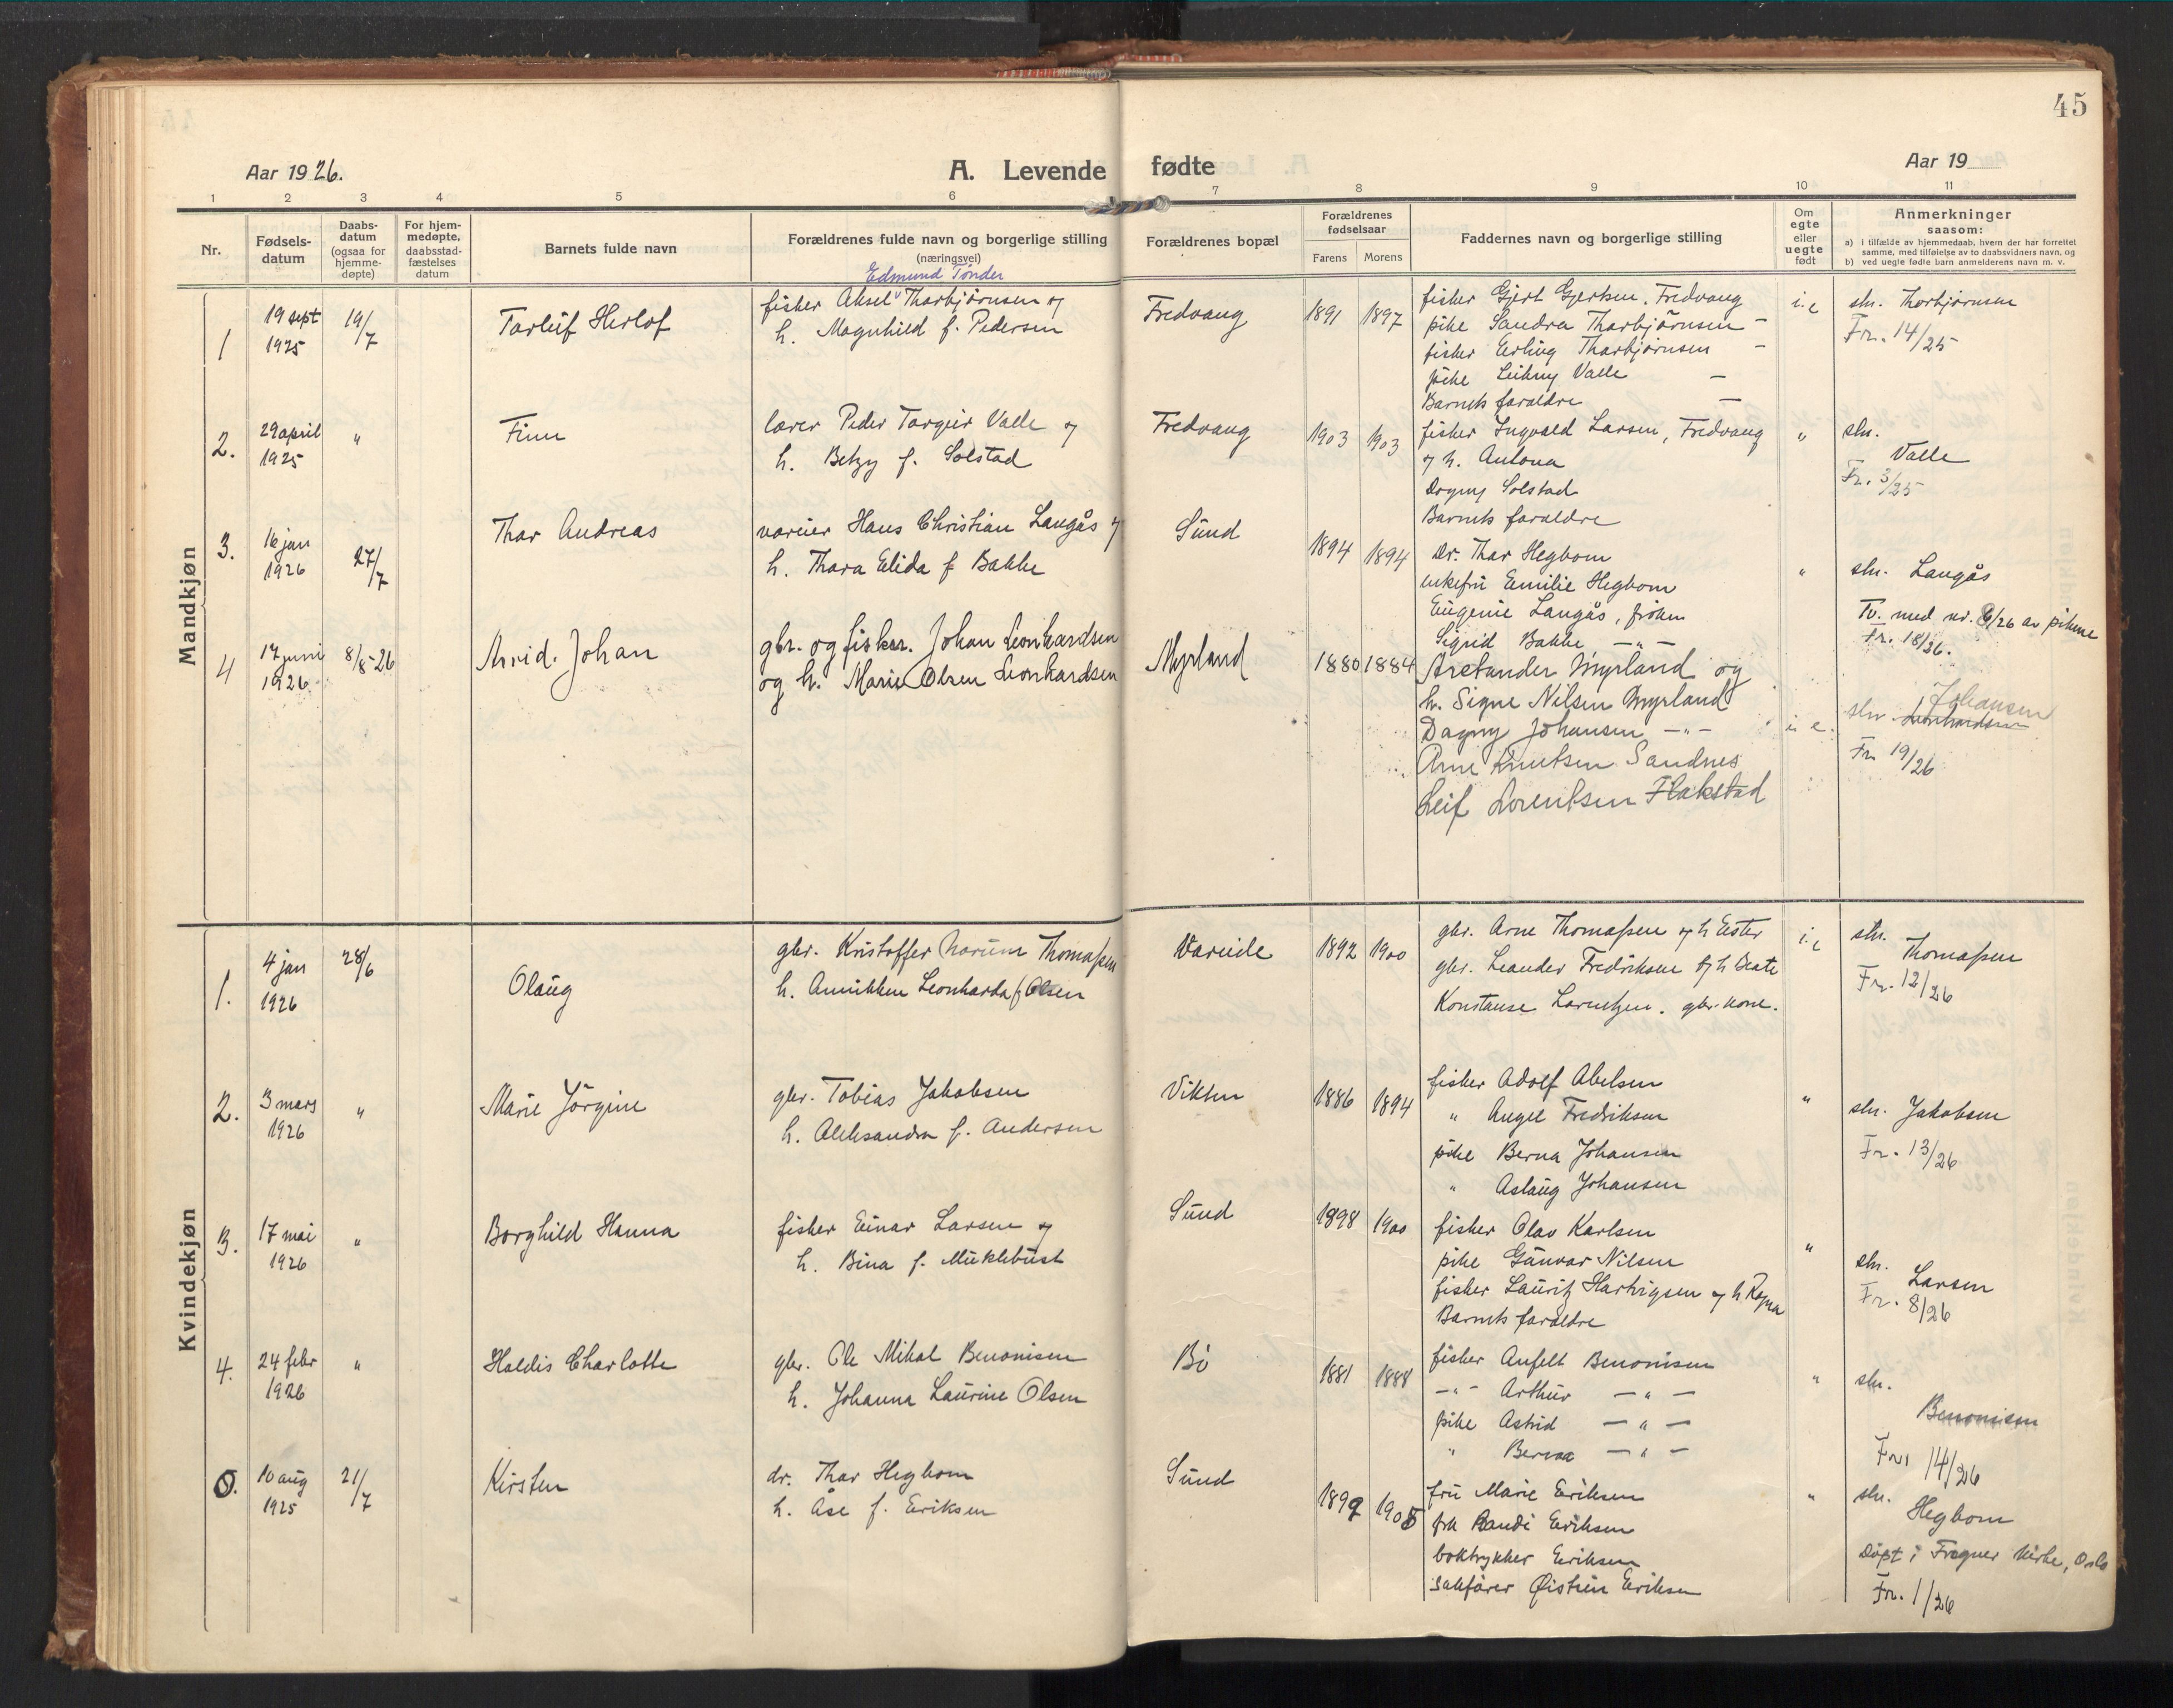 45
Aar 1926.
A. Levende fødte
Aar 19
1 2 3 4 5 6 7 8 9 10 11
Nr.
Fødsels-
datum
Daabs-
datum
(ogsaa for
hjemme-
døpte)
For hjem-
medøpte,
daabsstad-
fæstelses
datum
Barnets fulde navn
Forældrenes fulde navn og borgerlige stilling
(næringsvei)
Forældrenes bopæl
Forældrenes
fødselsaar
Farens Morens
Faddernes navn og borgerlige stilling
Om
egte
eller
uegte
født
Anmerkninger
saasom:
a) i tilfælde av hjemmedaab, hvem der har forrettet
samme, med tilføielse av to daabsvidners navn, og
b) ved uegte fødte barn anmelderens navn m. v.
Mandkjøn
1
19 sept
1925
19/7
Torleif Herlof
Edmund Tønder
fisker Aksel Thorbjørnsen og
h. Magnhild f. Pedersen
Fredvang
1891 1897
fisker Gjert Gjertsen, Fredvang
pike Sandra Thorbjørnsen –
fisker Erling Thorbjørnsen –
pike Leikny Valle –
Barnets foraldre –
i.e
sln. Thorbjørnsen
Fr. 14/25
2.
29 april
1925
"
Finn
lærer Peder Torgeir Valle og
h. Betzy f. Solstad
Fredvang
1903 1903
fisker Ingvald Larsen, Fredvang
og h. Antona
Dagny Solstad
Barnets foraldre
"
sln.
Valle
Fr. 3/25
3.
16 jan
1926
27/7
Thor Andreas
Hans Christian Langås og
h. Thora Elida f Bakke
Sund
1894 1894
Dr. Thor Hegbom
enkefru Emilie Hegbom
Eugenie Langås, frøken
Sigrid Bakke –"–
"
sln. Langås
Tv. med nr. 6/26 av pikene
Fr. 18/26.
4
17 juni
1926
8/8-26
Arvid Johan
gbr. og fisker. Johan Leonhardsen
og h. Marie Olsen Leonhardsen
Myrland
1880 1884
Aretander Myrland og
h. Signe Nilsen Myrland
Dagny Johansen –"–
Arne Knutsen Sandnes
Leif Lorentsen Flakstad
i e.
Johansen
sln Leonhardsen
Fr 19/26
Kvindekjøn
1.
4 jan
1926
28/6
Olaug
gbr. Kristoffer Norum Thomassen
h. Annikken Leonharda f Olsen
Vareide
1892 1900
gbr. Arne Thomassen og h Ester
gbr. Leander Fredriksen og h Beate
Konstanse Lorentzen. gbr. kone.
i.e
sln.
Thomassen
Fr. 12/26
2.
3 mars
1926
"
Marie Jørgine
gbr. Tobias Jakobsen
h. Aleksandra f. Andersen
Vikten
1886 1894
fisker Adolf Abelsen
" Angel Fredriksen
pike Berna Johansen
" Aslaug Johansen
"
sln. Jakobsen
Fr. 13/26
3.
17 mai
1926
"
Borghild Hanna
fisker Einar Larsen og
h. Bina f. Mücklebust
Sund
1898 1900
fisker Olav Karlsen
pike Gunvor Nilsen
fisker Lauritz Hartvigsen og h Ragna
Barnets foraldre
"
sln.
Larsen
Fr. 8/26
4.
24 febr
1926
"
Haldis Charlotte
gbr. Ole Mikal Benonisen
h. Johanna Laurine Olsen
Bø
1881 1888
fisker Anfelt Benonisen
–"– Arthur –"–
pike Astrid –"–
" Berna –"–
"
sln.
Benonisen
Fr. 14/26
5.
10 aug
1925
21/7
Kirsten
dr. Thor Hegbom
h. Åse f. Eriksen
Sund
1899 1905
fru Marie Eriksen
frk Randi Eriksen
boktrykker Eriksen
sakfører Øistein Eriksen
"
sln.
Hegbom
Døpt i Frogner kirke, Oslo
Fr. 1/26